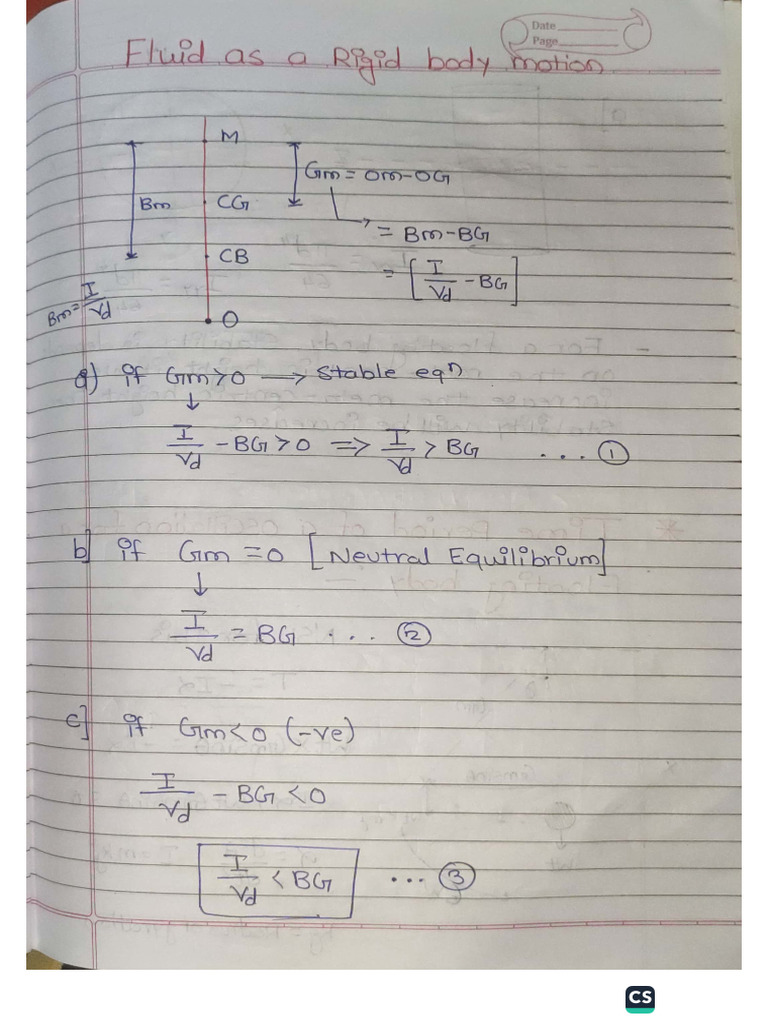 Date
Page
Fluid as a Rigid body motion
M
Gm = OM-OG
Bm
CG
= Bm-BG
CB
= [I/Vd - BG]
Bm = I/Vd
O
a) if Gm>0 → stable eqⁿ
↓
I/Vd - BG > 0 ⇒ I/Vd > BG ... ①
b] if Gm = 0 [Neutral Equilibrium]
↓
I/Vd = BG ... ②
c] if Gm<0 (-ve)
I/Vd - BG < 0
I/Vd < BG ... ③
CS